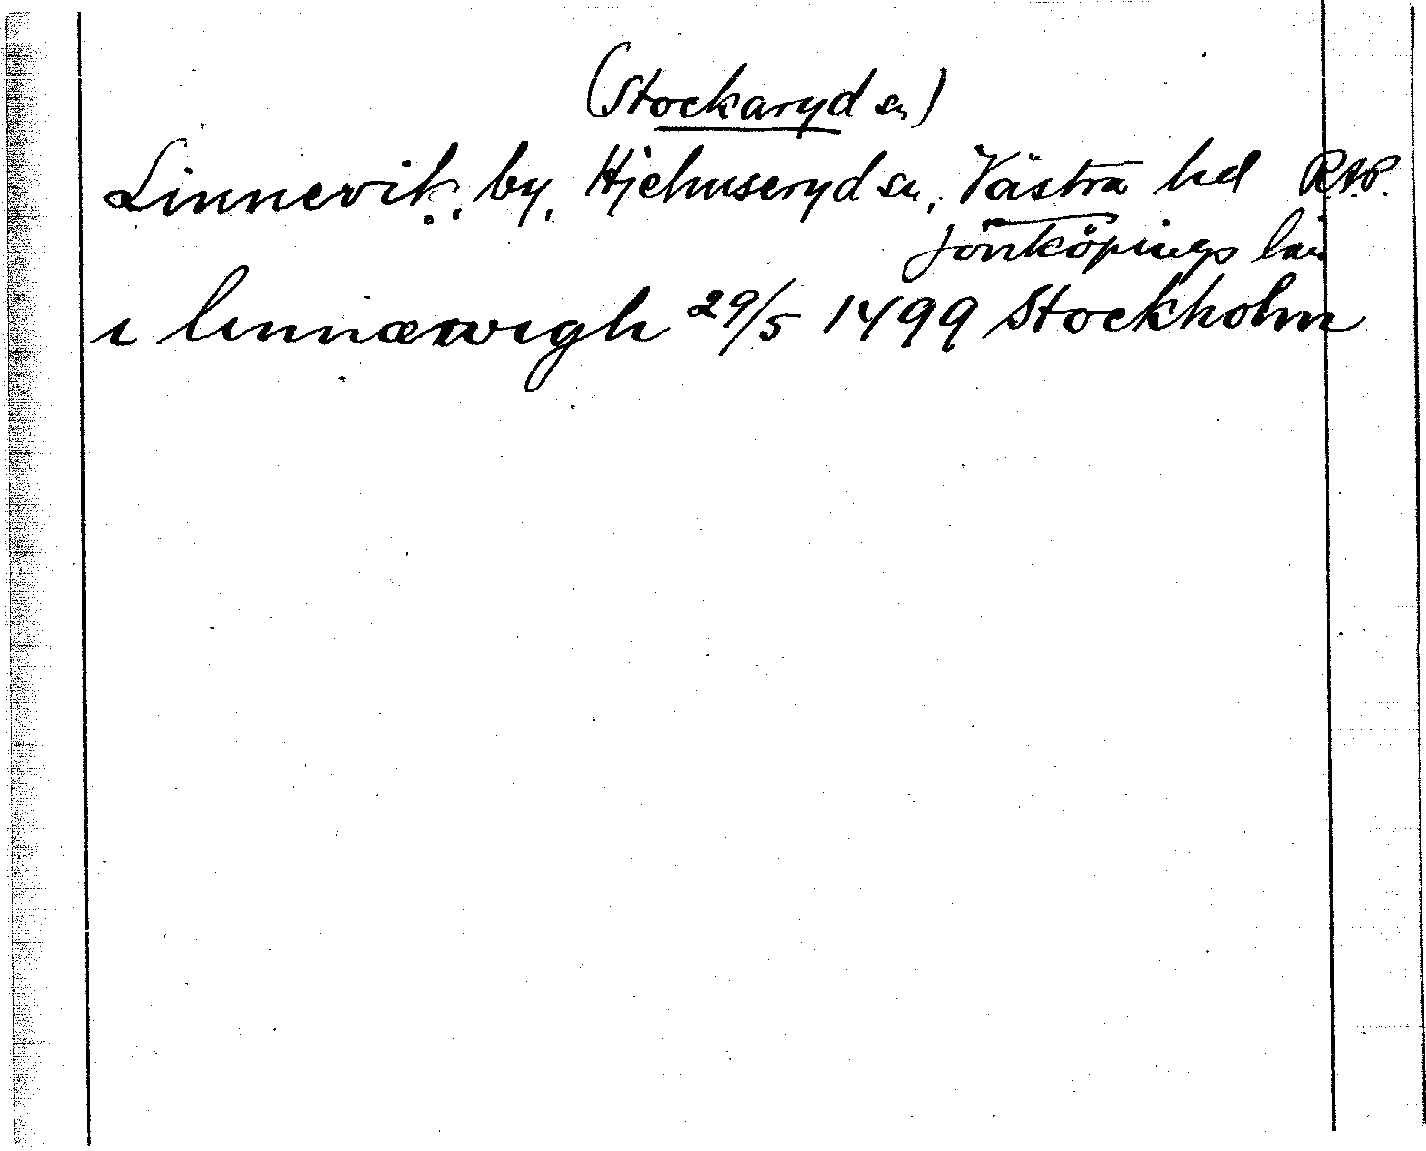 (Stockaryd sn)
Linnevik, by, Hjelmseryd sn, Västra hd RAP.
Jönköpings län
i linnæwigh 29/5 1499 Stockholm